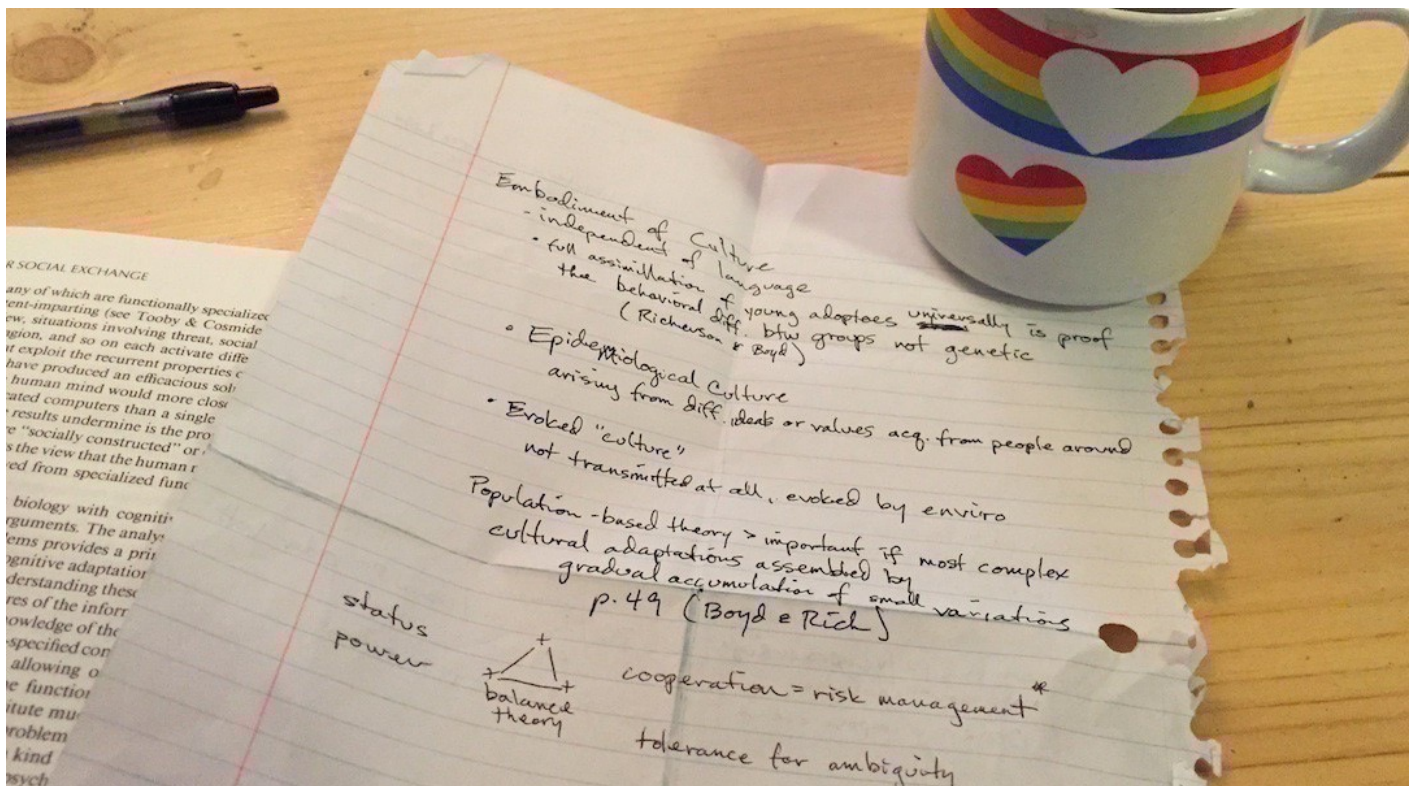 R SOCIAL EXCHANGE
any of which are functionally specialized
ent-imparting (see Tooby & Cosmide
ew, situations involving threat, social
gion, and so on each activate diffe
at exploit the recurrent properties
have produced an efficacious sol
human mind would more clos
cated computers than a single
results undermine is the pro
re "socially constructed" or
s the view that the human
ved from specialized func
biology with cogniti
rguments. The analy
ems provides a pri
ognitive adaptation
derstanding these
res of the inform
owledge of the
-specified con
allowing o
e function
itute mu
problem
kind
psych
Embodiment of Culture
- independent of language
• full assimilation of young adoptees universally is proof
the behavioral diff. btw groups not genetic
(Richerson & Boyd)
• Epidemiological Culture
arising from diff. ideas or values acq. from people around
• Evoked "culture"
not transmitted at all, evoked by enviro
Population-based theory > important if most complex
cultural adaptations assembled by
gradual accumulation of small variations
p. 49 (Boyd e Rich)
status
power
+
+ +
balance
theory
cooperation = risk management*
tolerance for ambiguity